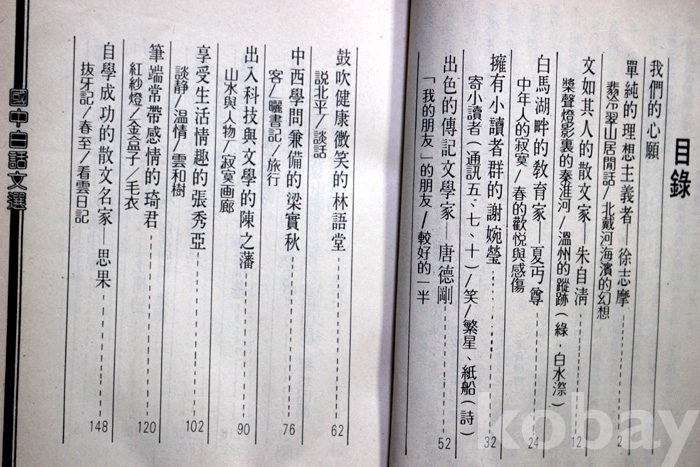 目錄
我們的心願
單純的理想主義者─徐志摩 2
翡冷翠山居閒話/北戴河海濱的幻想
文如其人的散文家─朱自清 12
槳聲燈影裏的秦淮河/溫州的蹤跡(綠.白水漈)
白馬湖畔的教育家─夏丏尊 24
中年人的寂寞/春的歡悅與感傷
擁有小讀者群的謝婉瑩 32
寄小讀者(通訊五、七、十)/笑/繁星、紙船(詩)
出色的傳記文學家─唐德剛 52
「我的朋友」的朋友/較好的一半
鼓吹健康微笑的林語堂 62
說北平/談話
中西學問兼備的梁實秋 76
客/曬書記/旅行
出入科技與文學的陳之藩 90
山水與人物/寂寞画廊
享受生活情趣的張秀亞 102
談靜/溫情/雲和樹
筆端常帶感情的琦君 120
紅紗燈/金盒子/毛衣
自學成功的散文名家─思果 148
拔牙記/春至/看雲日記
國中白話文選
kobay